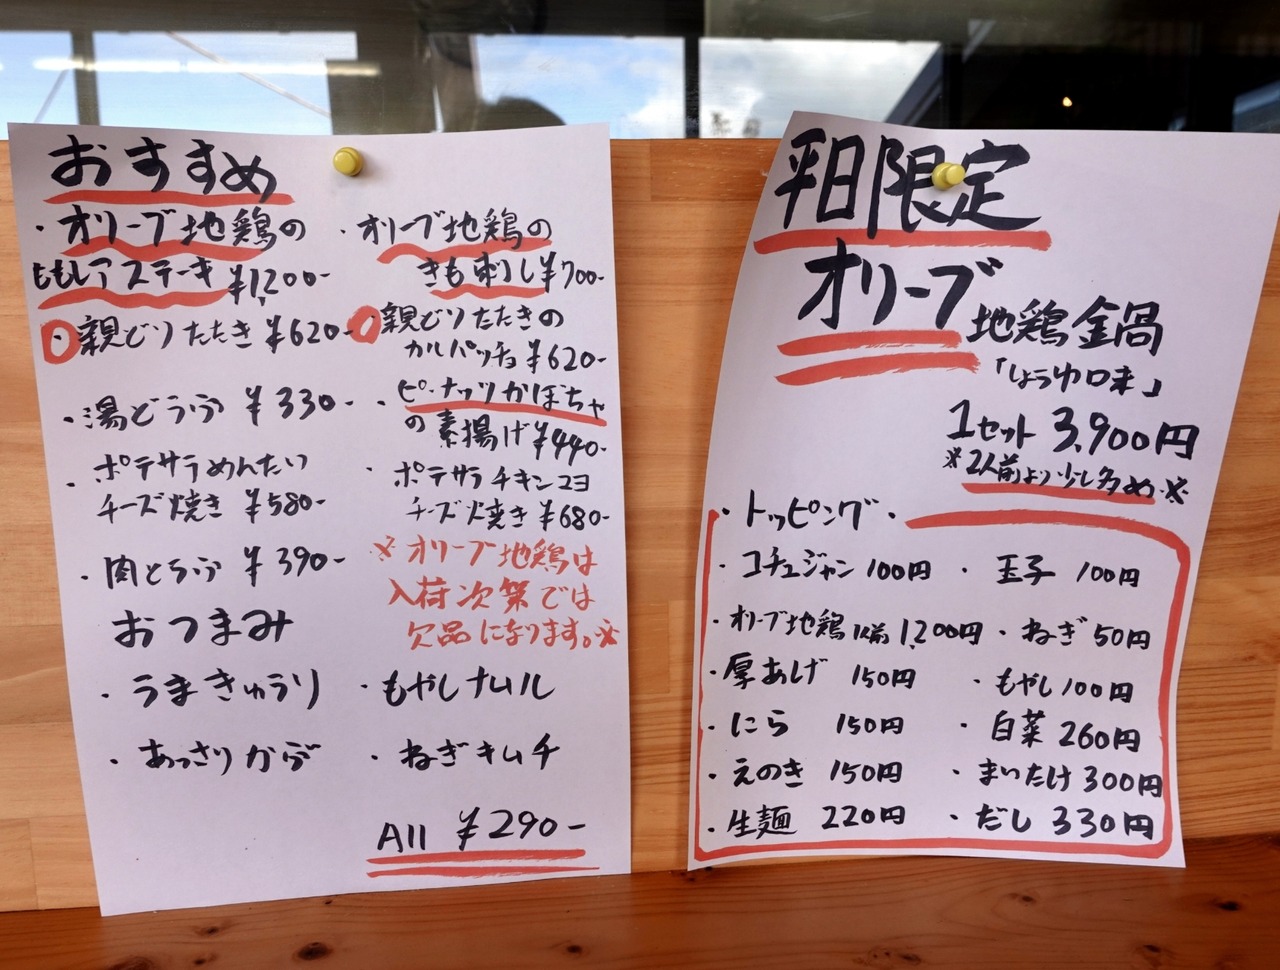 おすすめ
・オリーブ地鶏の
ももしアステーキ ¥1,200-
・親どりたたき ¥620-
・湯どうふ ¥330-
・ポテサラめんたい
チーズ焼き ¥580-
・肉とうふ ¥390-
・オリーブ地鶏の
きも刺し ¥700-
・親どりたたきの
カルパッチョ ¥620-
・ピーナッツかぼちゃ
の素揚げ ¥440-
・ポテサラチキンマヨ
チーズ焼き ¥680-
※オリーブ地鶏は
入荷次第では
欠品になります。※
おつまみ
・うまきゅうり ・もやしナムル
・あっさりからし ・ねぎキムチ
All ¥290-
平日限定
オリーブ地鶏鍋
「しょうゆ味」
1セット 3,900円
※2人前より少し多め※
・トッピング・
・コチュジャン 100円 ・玉子 100円
・オリーブ地鶏1人前 1,200円 ・ねぎ 50円
・厚あげ 150円 ・もやし 100円
・にら 150円 ・白菜 260円
・えのき 150円 ・まいたけ 300円
・生麺 220円 ・だし 330円